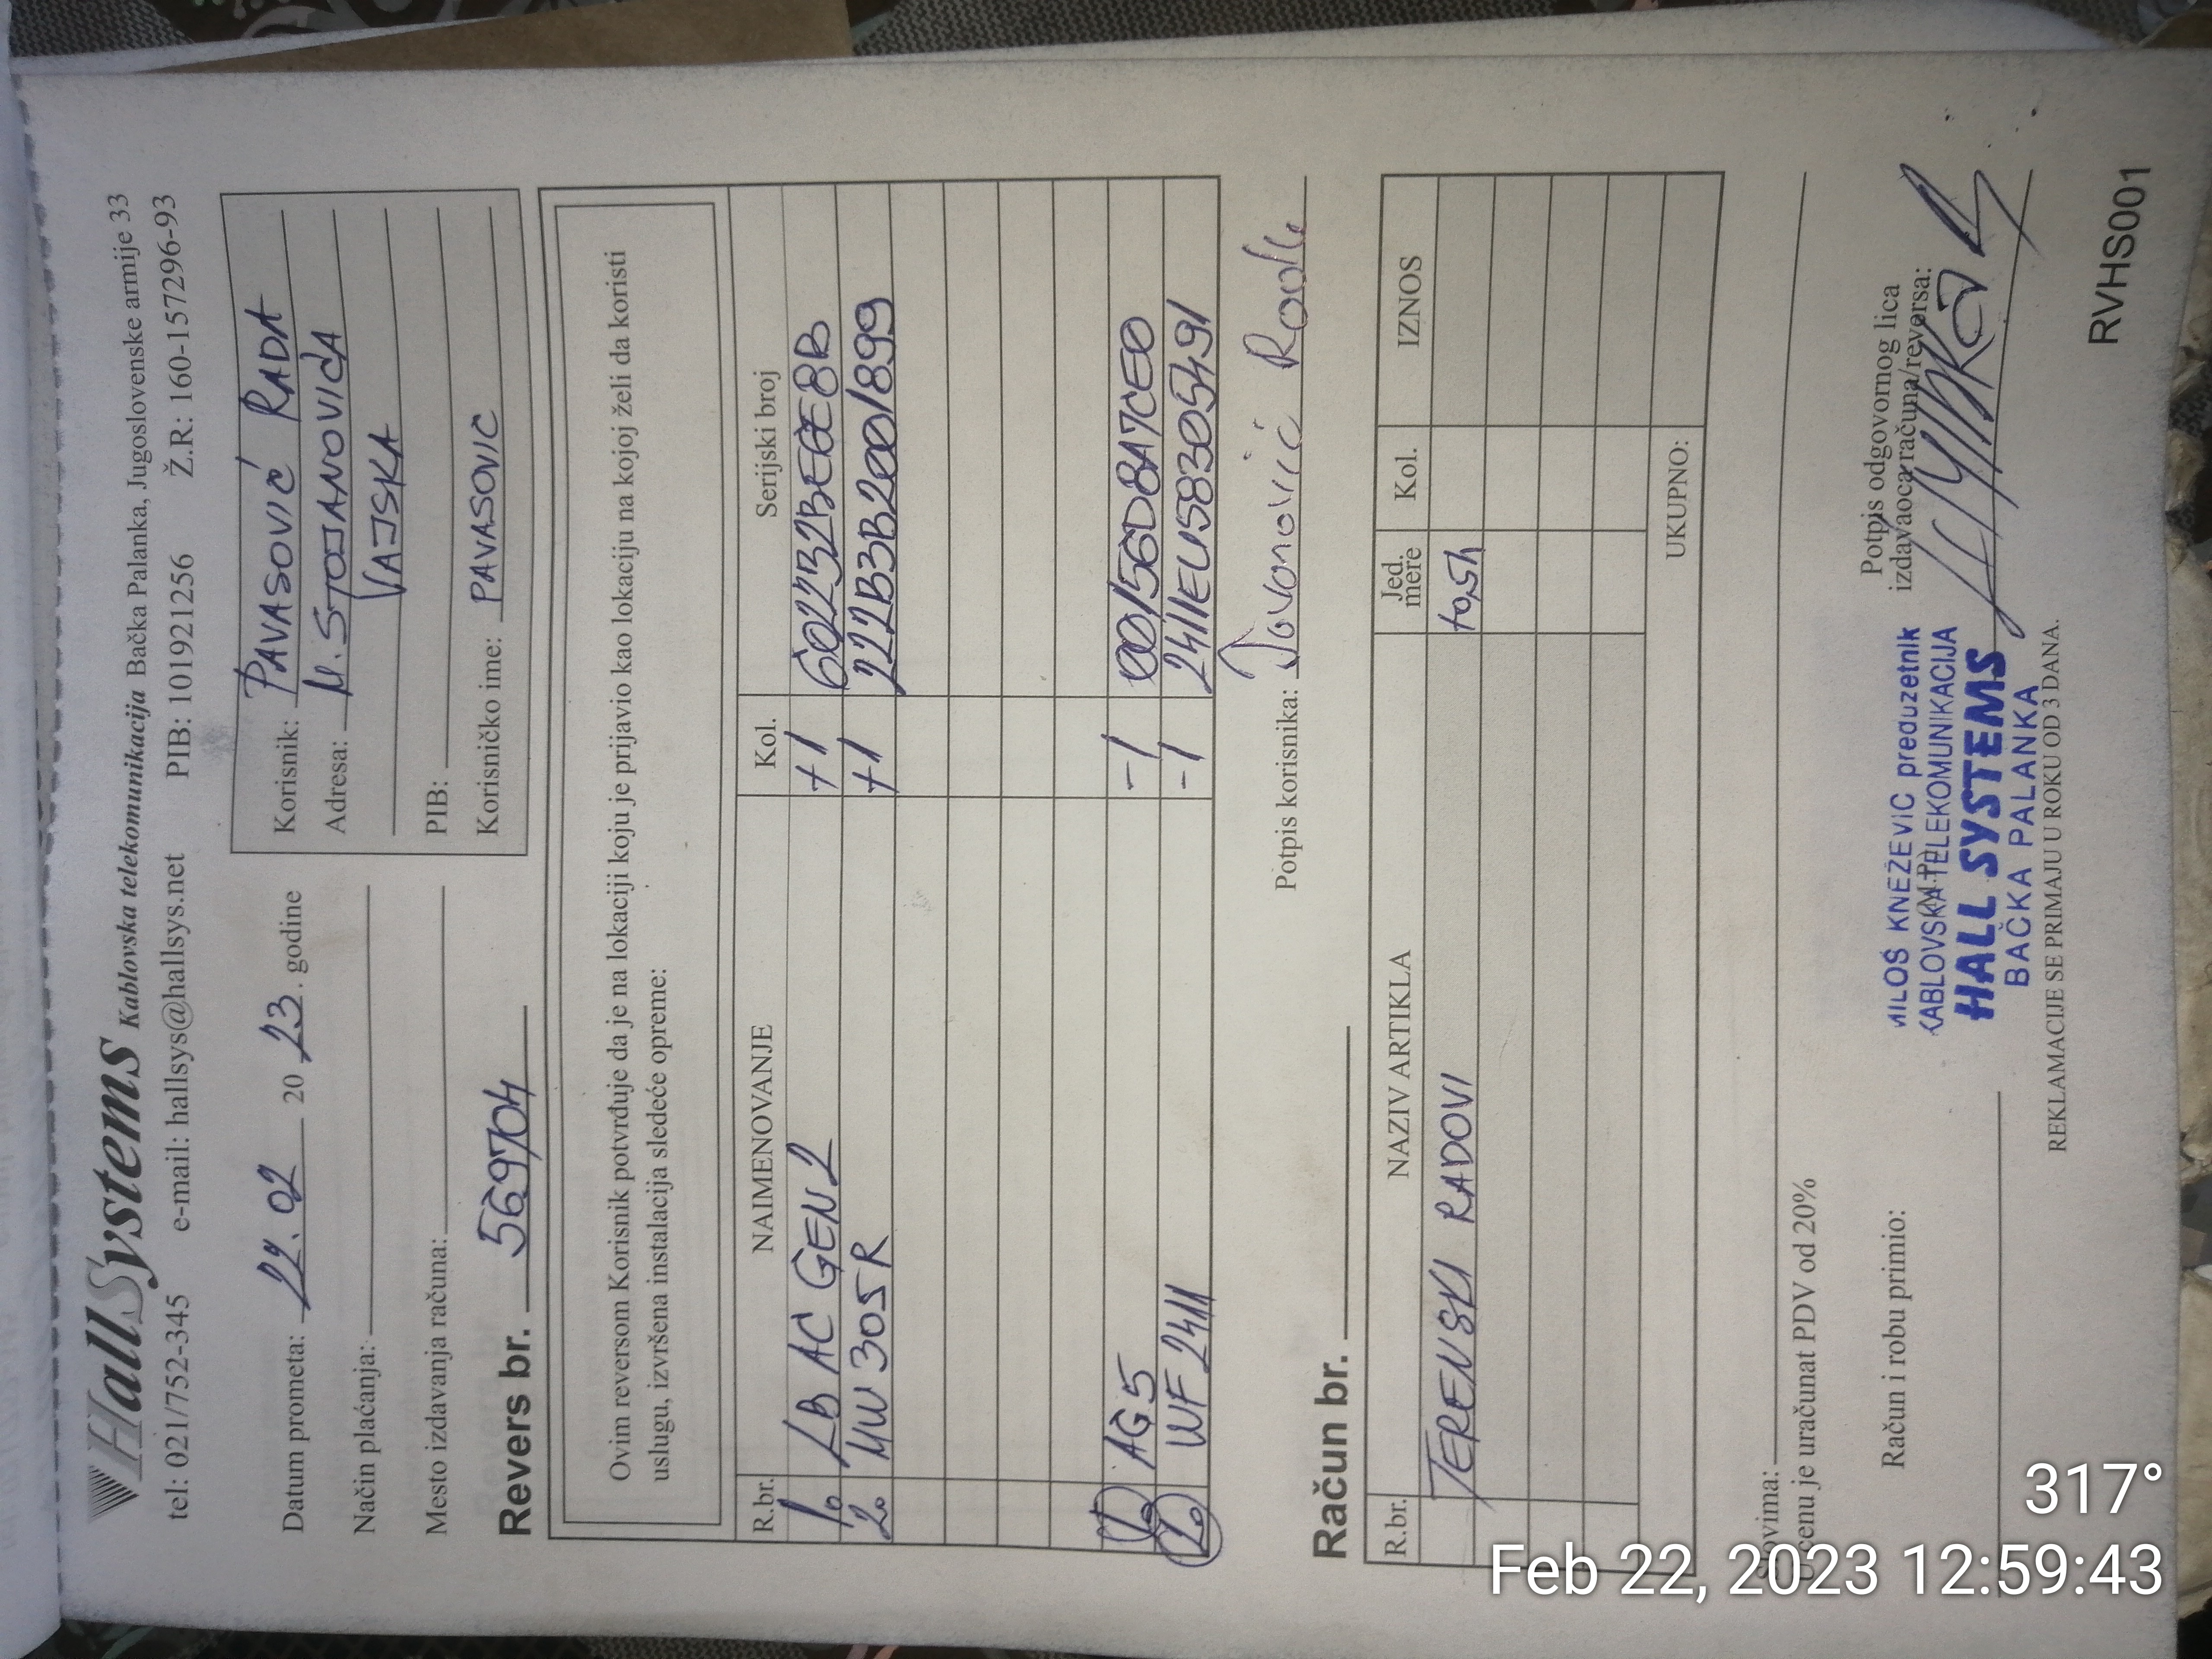 HallSystems Kablovska telekomunikacija Bačka Palanka, Jugoslovenske armije 33
tel: 021/752-345 e-mail: hallsys@hallsys.net PIB: 101921256 Ž.R: 160-157296-93
Datum prometa: 22.02 20 23. godine
Način plaćanja:
Mesto izdavanja računa:
Korisnik: PAVASOVIĆ RADA
Adresa: M. STOJANOVIĆA
VAJSKA
PIB:
Korisničko ime: PAVASOVIC
Revers br. 569704
Ovim reversom Korisnik potvrđuje da je na lokaciji koju je prijavio kao lokaciju na kojoj želi da koristi
uslugu, izvršena instalacija sledeće opreme:
R.br. NAIMENOVANJE Kol. Serijski broj
1. LB AC GEN2 +1
2. MW 305R +1 222B3B2001899
1. AG5 -1 00156D8A7CE0
2. WF 2411 -1 2411EU5830S491
Potpis korisnika: Jovanović Rade
Račun br.
R.br. NAZIV ARTIKLA Jed. mere Kol. IZNOS
TERENSKI RADOVI
UKUPNO:
U cenu je uračunat PDV od 20%
Račun i robu primio:
Potpis odgovornog lica
izdavaoca računa/reversa:
MILOŠ KNEŽEVIĆ preduzetnik
KABLOVSKA TELEKOMUNIKACIJA
HALL SYSTEMS
BAČKA PALANKA
REKLAMACIJE SE PRIMAJU U ROKU OD 3 DANA.
RVHS001
317°
Feb 22, 2023 12:59:43